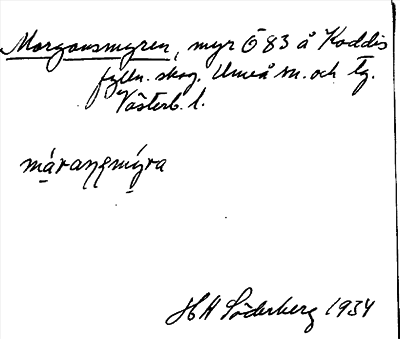 Morgonsmyren, myr Ö 83 å Koddis
fälln. skog. Umeå sn. och tg.
Västerb. l.
HH Söderberg 1934